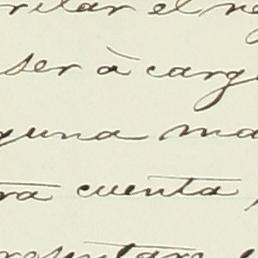 ritar el re
ser à carg
guna ma
ra cuenta